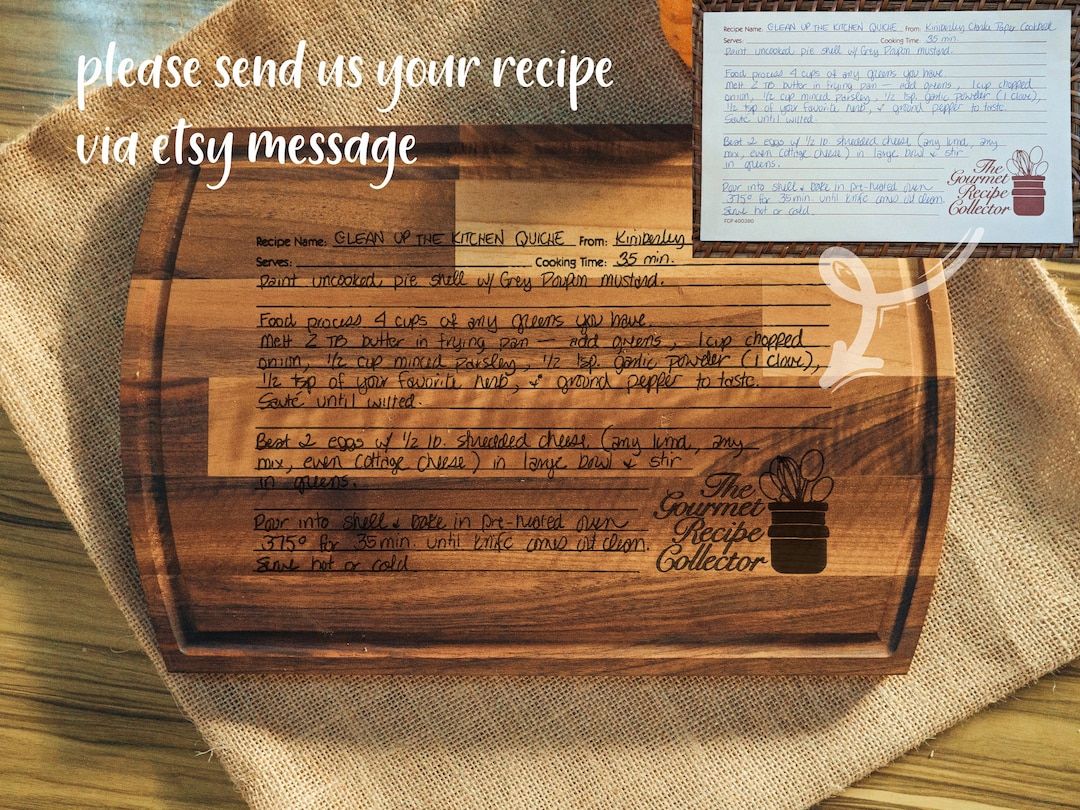 please send us your recipe
via etsy message
Recipe Name: CLEAN UP THE KITCHEN QUICHE From: Kimberley Clarke Paper Cookbook
Serves: Cooking Time: 35 min.
Paint uncooked pie shell w/ Grey Poupon mustard.
Food process 4 cups of any greens you have
Melt 2 TB butter in frying pan — add greens, 1 cup chopped
onion, 1/2 cup minced parsley, 1/2 tsp. garlic powder (1 clove),
1/2 tsp of your favorite herb, & ground pepper to taste.
Sauté until wilted.
Beat 2 eggs w/ 1/2 lb. shredded cheese (any kind, any
mix, even cottage cheese) in large bowl & stir
in greens.
Pour into shell & bake in pre-heated oven
375° for 35 min. until knife comes out clean.
Serve hot or cold.
FCP 400390
The
Gourmet
Recipe
Collector
Recipe Name: CLEAN UP THE KITCHEN QUICHE From: Kimberley
Serves: Cooking Time: 35 min.
Paint uncooked pie shell w/ Grey Poupon mustard.
Food process 4 cups of any greens you have
Melt 2 TB butter in frying pan — add greens, 1 cup chopped
onion, 1/2 cup minced parsley, 1/2 tsp. garlic powder (1 clove),
1/2 tsp of your favorite herb, & ground pepper to taste.
Sauté until wilted.
Beat 2 eggs w/ 1/2 lb. shredded cheese (any kind, any
mix, even cottage cheese) in large bowl & stir
in greens.
Pour into shell & bake in pre-heated oven
375° for 35 min. until knife comes out clean.
Serve hot or cold
The
Gourmet
Recipe
Collector